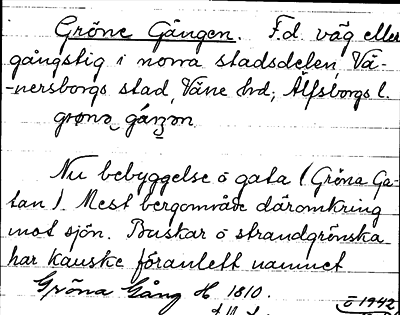 Gröne Gången. F.d. väg eller
gångstig i norra stadsdelen, Vä-
-nersborgs stad, Väne hd, Älfsborgs l.
Nu bebyggelse o gata (Gröna Ga-
tan). Mest bergområde däromkring
mot sjön. Buskar o strandgrönska
har kanske föranlett namnet
Gröna Gång H 1810.
o 1942